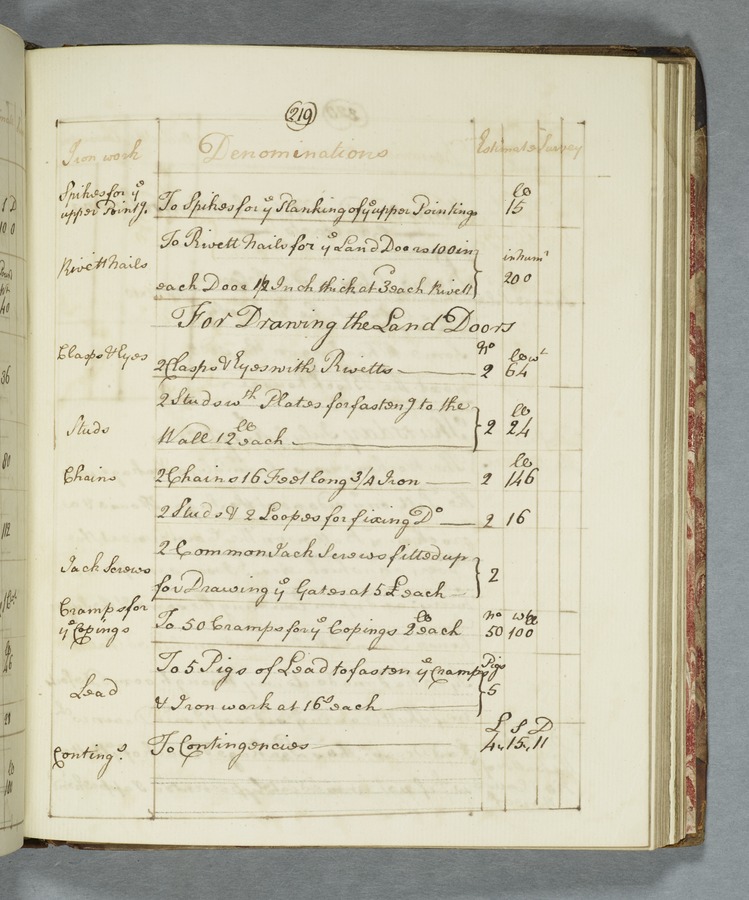 219
Iron work Denominations Estimate Survey
Spikes for ye
upper Point.g. To Spikes for ye Planking of ye upper Pointing lb 15
To Rivett Nails for ye Land Doors 100 in in Num.r
Rivett Nails each Door 1/2 Inch thick at 3 each Rivett 200
For Drawing the Land Doors
Clasps & Eyes 2 Clasps & Eyes with Rivetts No 2 lb wt 64
2 Studs wth Plates for fasten.g to the lb
Studs Wall 12 lb each 2 24
Chains 2 Chains 16 Feet long 3/4 Iron 2 lb 146
2 Studs & 2 Loopes for fixing Do 2 16
2 Common Jack Screws fitted up
Jack Screws for Drawing ye Gates at 5£ each 2
Cramps for
ye Copings To 50 Cramps for ye Copings 2 lb each no 50 100
To 5 Pigs of Lead to fasten ye Cramps Pigs
Lead & Iron work at 16s each 5
£ S D
Conting.s. To Contingencies 4,,15,,11